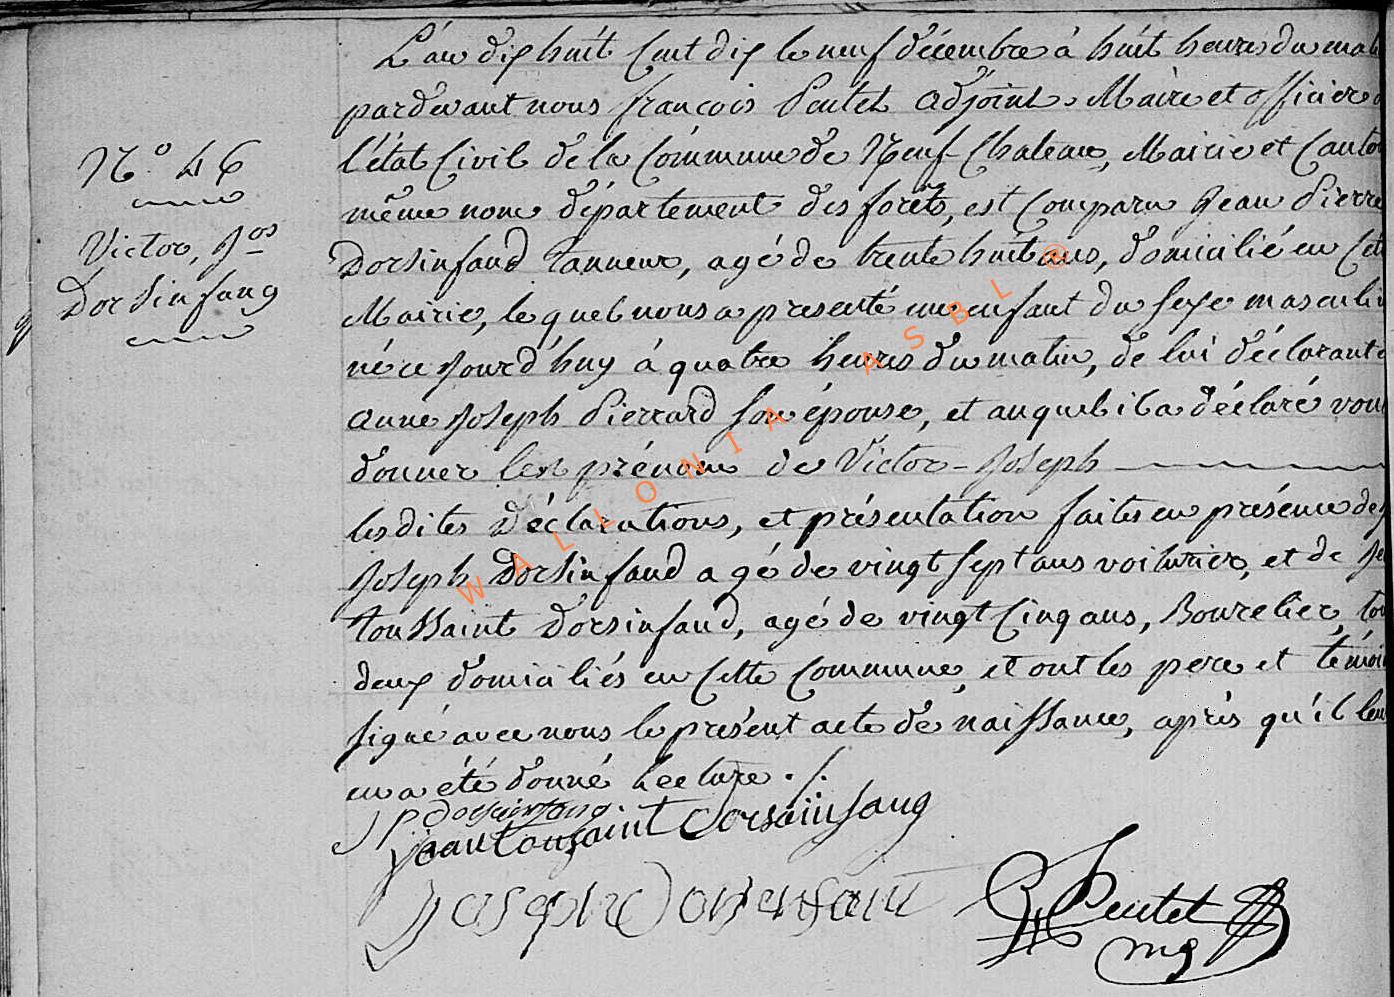 N.o 46
Victor, Jos
Dorsinfang
L'an dix huit Cent dix le neuf décembre à huit heures du mat
pardevant nous françois Peutet adjoint Maire et officier
l'état Civil de la Commune de Neuf-Chateau, Mairie et Canton
même nom département des forêts, est Comparu Jean Pierre
Dorsinfand Tanneur, agé de trente huit ans, domicilié en Cet
Mairie, lequel nous a presenté un enfant du sexe masculin
né ce Jourd'huy à quatre heures du matin, de lui déclarant
anne Joseph Pierrard son épouse, et auquel il a déclaré voul
donner les prénom de Victor-Joseph
les dites Déclarations, et présentation faites en présence de
Joseph Dorsinfand agé de vingt sept ans voiturier, et de Je
toussaint Dorsinfand, agé de vingt Cinq ans, Bourelier, tou
deux domiciliés en Cette Commune et ont les pere et témoin
signé avec nous le présent acte de naissance, après qu'il leur
en a été donné Lecture ./.
JP dorsainfang
jean tousaint dorsainfang
Joseph Dorsenfant
Peutet
WALLONIA ASBL ®